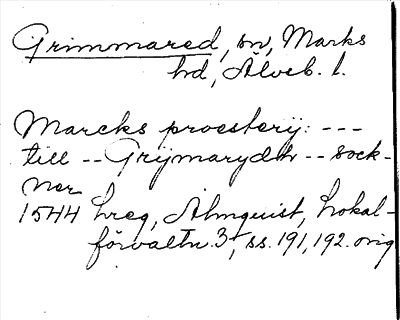 Grimmared, sn, Marks
hd, Älvsb. l.
Marcks prœsterij: ---
till -- Grijmarydh -- sock-
ner
1544 hreg, Almquist, Lokal-
förvaltn. 3, ss. 191, 192. orig